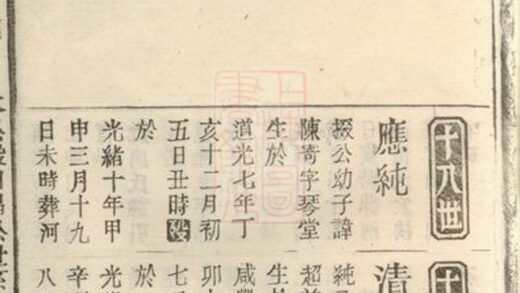 十八世
應純
掇公幼子諱
陳寄字琴堂
生於
道光七年丁
亥十二月初
五日丑時歿
於
光緒十年甲
申三月十九
日未時葬河
十
清
純
超
生
咸
卯
七
於
光
辛
八